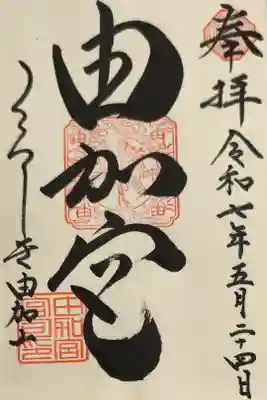 奉拝
令和七年五月二十四日
由加宮
うつくしき由加山